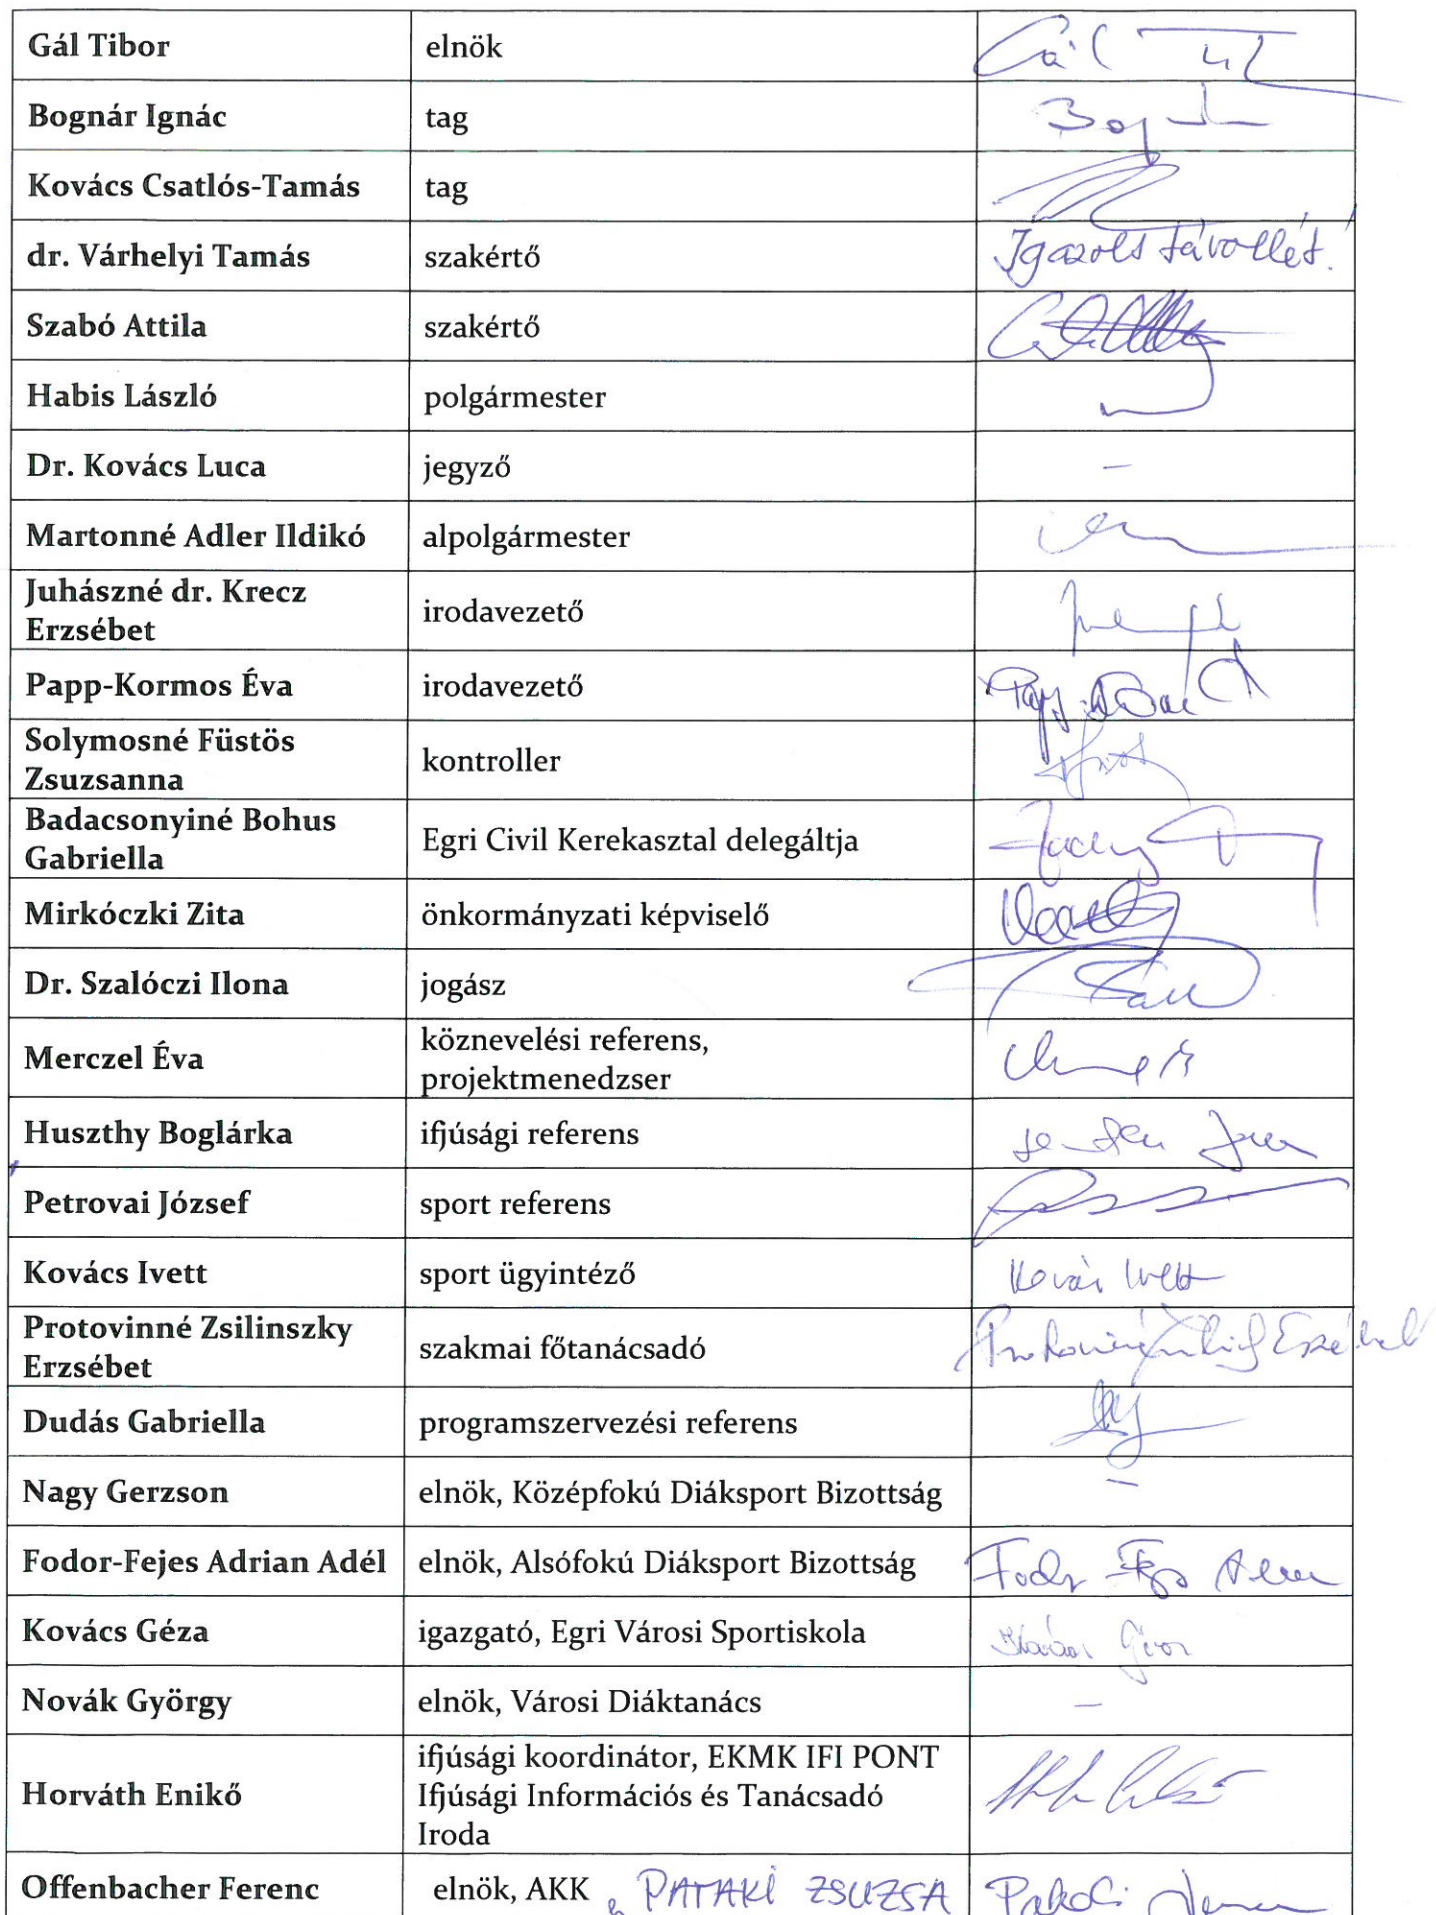 Gál Tibor elnök
Bognár Ignác tag
Kovács Csatlós-Tamás tag
dr. Várhelyi Tamás szakértő Igazolt távollét!
Szabó Attila szakértő
Habis László polgármester
Dr. Kovács Luca jegyző –
Martonné Adler Ildikó alpolgármester
Juhászné dr. Krecz
Erzsébet
irodavezető
Papp-Kormos Éva irodavezető
Solymosné Füstös
Zsuzsanna
kontroller
Badacsonyiné Bohus
Gabriella
Egri Civil Kerekasztal delegáltja
Mirkóczki Zita önkormányzati képviselő
Dr. Szalóczi Ilona jogász
Merczel Éva
köznevelési referens,
projektmenedzser
Huszthy Boglárka ifjúsági referens
Petrovai József sport referens
Kovács Ivett sport ügyintéző Kovács Ivett
Protovinné Zsilinszky
Erzsébet
szakmai főtanácsadó
Dudás Gabriella programszervezési referens
Nagy Gerzson elnök, Középfokú Diáksport Bizottság –
Fodor-Fejes Adrian Adél elnök, Alsófokú Diáksport Bizottság
Kovács Géza igazgató, Egri Városi Sportiskola
Novák György elnök, Városi Diáktanács –
Horváth Enikő
ifjúsági koordinátor, EKMK IFI PONT
Ifjúsági Információs és Tanácsadó
Iroda
Offenbacher Ferenc elnök, AKK PATAKI ZSUZSA